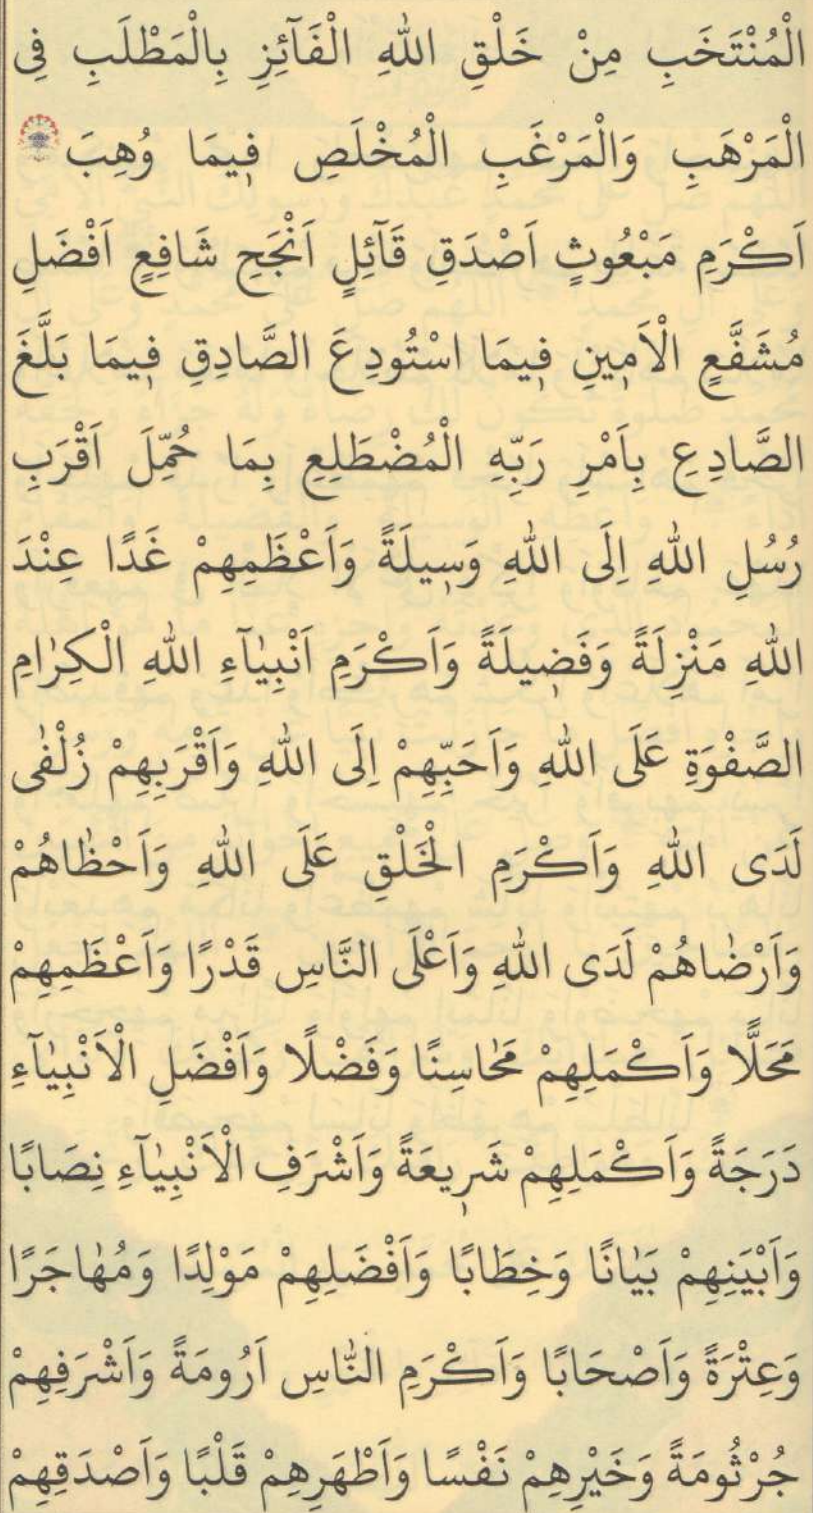 الْمُنْتَخَبِ مِنْ خَلْقِ اللّٰهِ الْفَآئِزِ بِالْمَطْلَبِ فِى
الْمَرْهَبِ وَالْمَرْغَبِ الْمُخْلَصِ فٖيمَا وُهِبَ
اَكْرَمِ مَبْعُوثٍ اَصْدَقِ قَآئِلٍ اَنْجَحِ شَافِعٍ اَفْضَلِ
مُشَفَّعٍ الْاَمٖينِ فٖيمَا اسْتُودِعَ الصَّادِقِ فٖيمَا بَلَّغَ
الصَّادِعِ بِاَمْرِ رَبِّهِ الْمُضْطَلِعِ بِمَا حُمِّلَ اَقْرَبِ
رُسُلِ اللّٰهِ اِلَى اللّٰهِ وَسٖيلَةً وَاَعْظَمِهِمْ غَدًا عِنْدَ
اللّٰهِ مَنْزِلَةً وَفَضٖيلَةً وَاَكْرَمِ اَنْبِيٰٓاءِ اللّٰهِ الْكِرٰامِ
الصَّفْوَةِ عَلَى اللّٰهِ وَاَحَبِّهِمْ اِلَى اللّٰهِ وَاَقْرَبِهِمْ زُلْفٰى
لَدَى اللّٰهِ وَاَكْرَمِ الْخَلْقِ عَلَى اللّٰهِ وَاَحْظٰاهُمْ
وَاَرْضٰاهُمْ لَدَى اللّٰهِ وَاَعْلَى النَّاسِ قَدْرًا وَاَعْظَمِهِمْ
مَحَلًّا وَاَكْمَلِهِمْ مَحٰاسِنًا وَفَضْلًا وَاَفْضَلِ الْاَنْبِيٰٓاءِ
دَرَجَةً وَاَكْمَلِهِمْ شَرٖيعَةً وَاَشْرَفِ الْاَنْبِيٰٓاءِ نِصَابًا
وَاَبْيَنِهِمْ بَيٰانًا وَخِطَابًا وَاَفْضَلِهِمْ مَوْلِدًا وَمُهٰاجَرًا
وَعِتْرَةً وَاَصْحَابًا وَاَكْرَمِ النّٰاسِ اَرُومَةً وَاَشْرَفِهِمْ
جُرْثُومَةً وَخَيْرِهِمْ نَفْسًا وَاَطْهَرِهِمْ قَلْبًا وَاَصْدَقِهِمْ